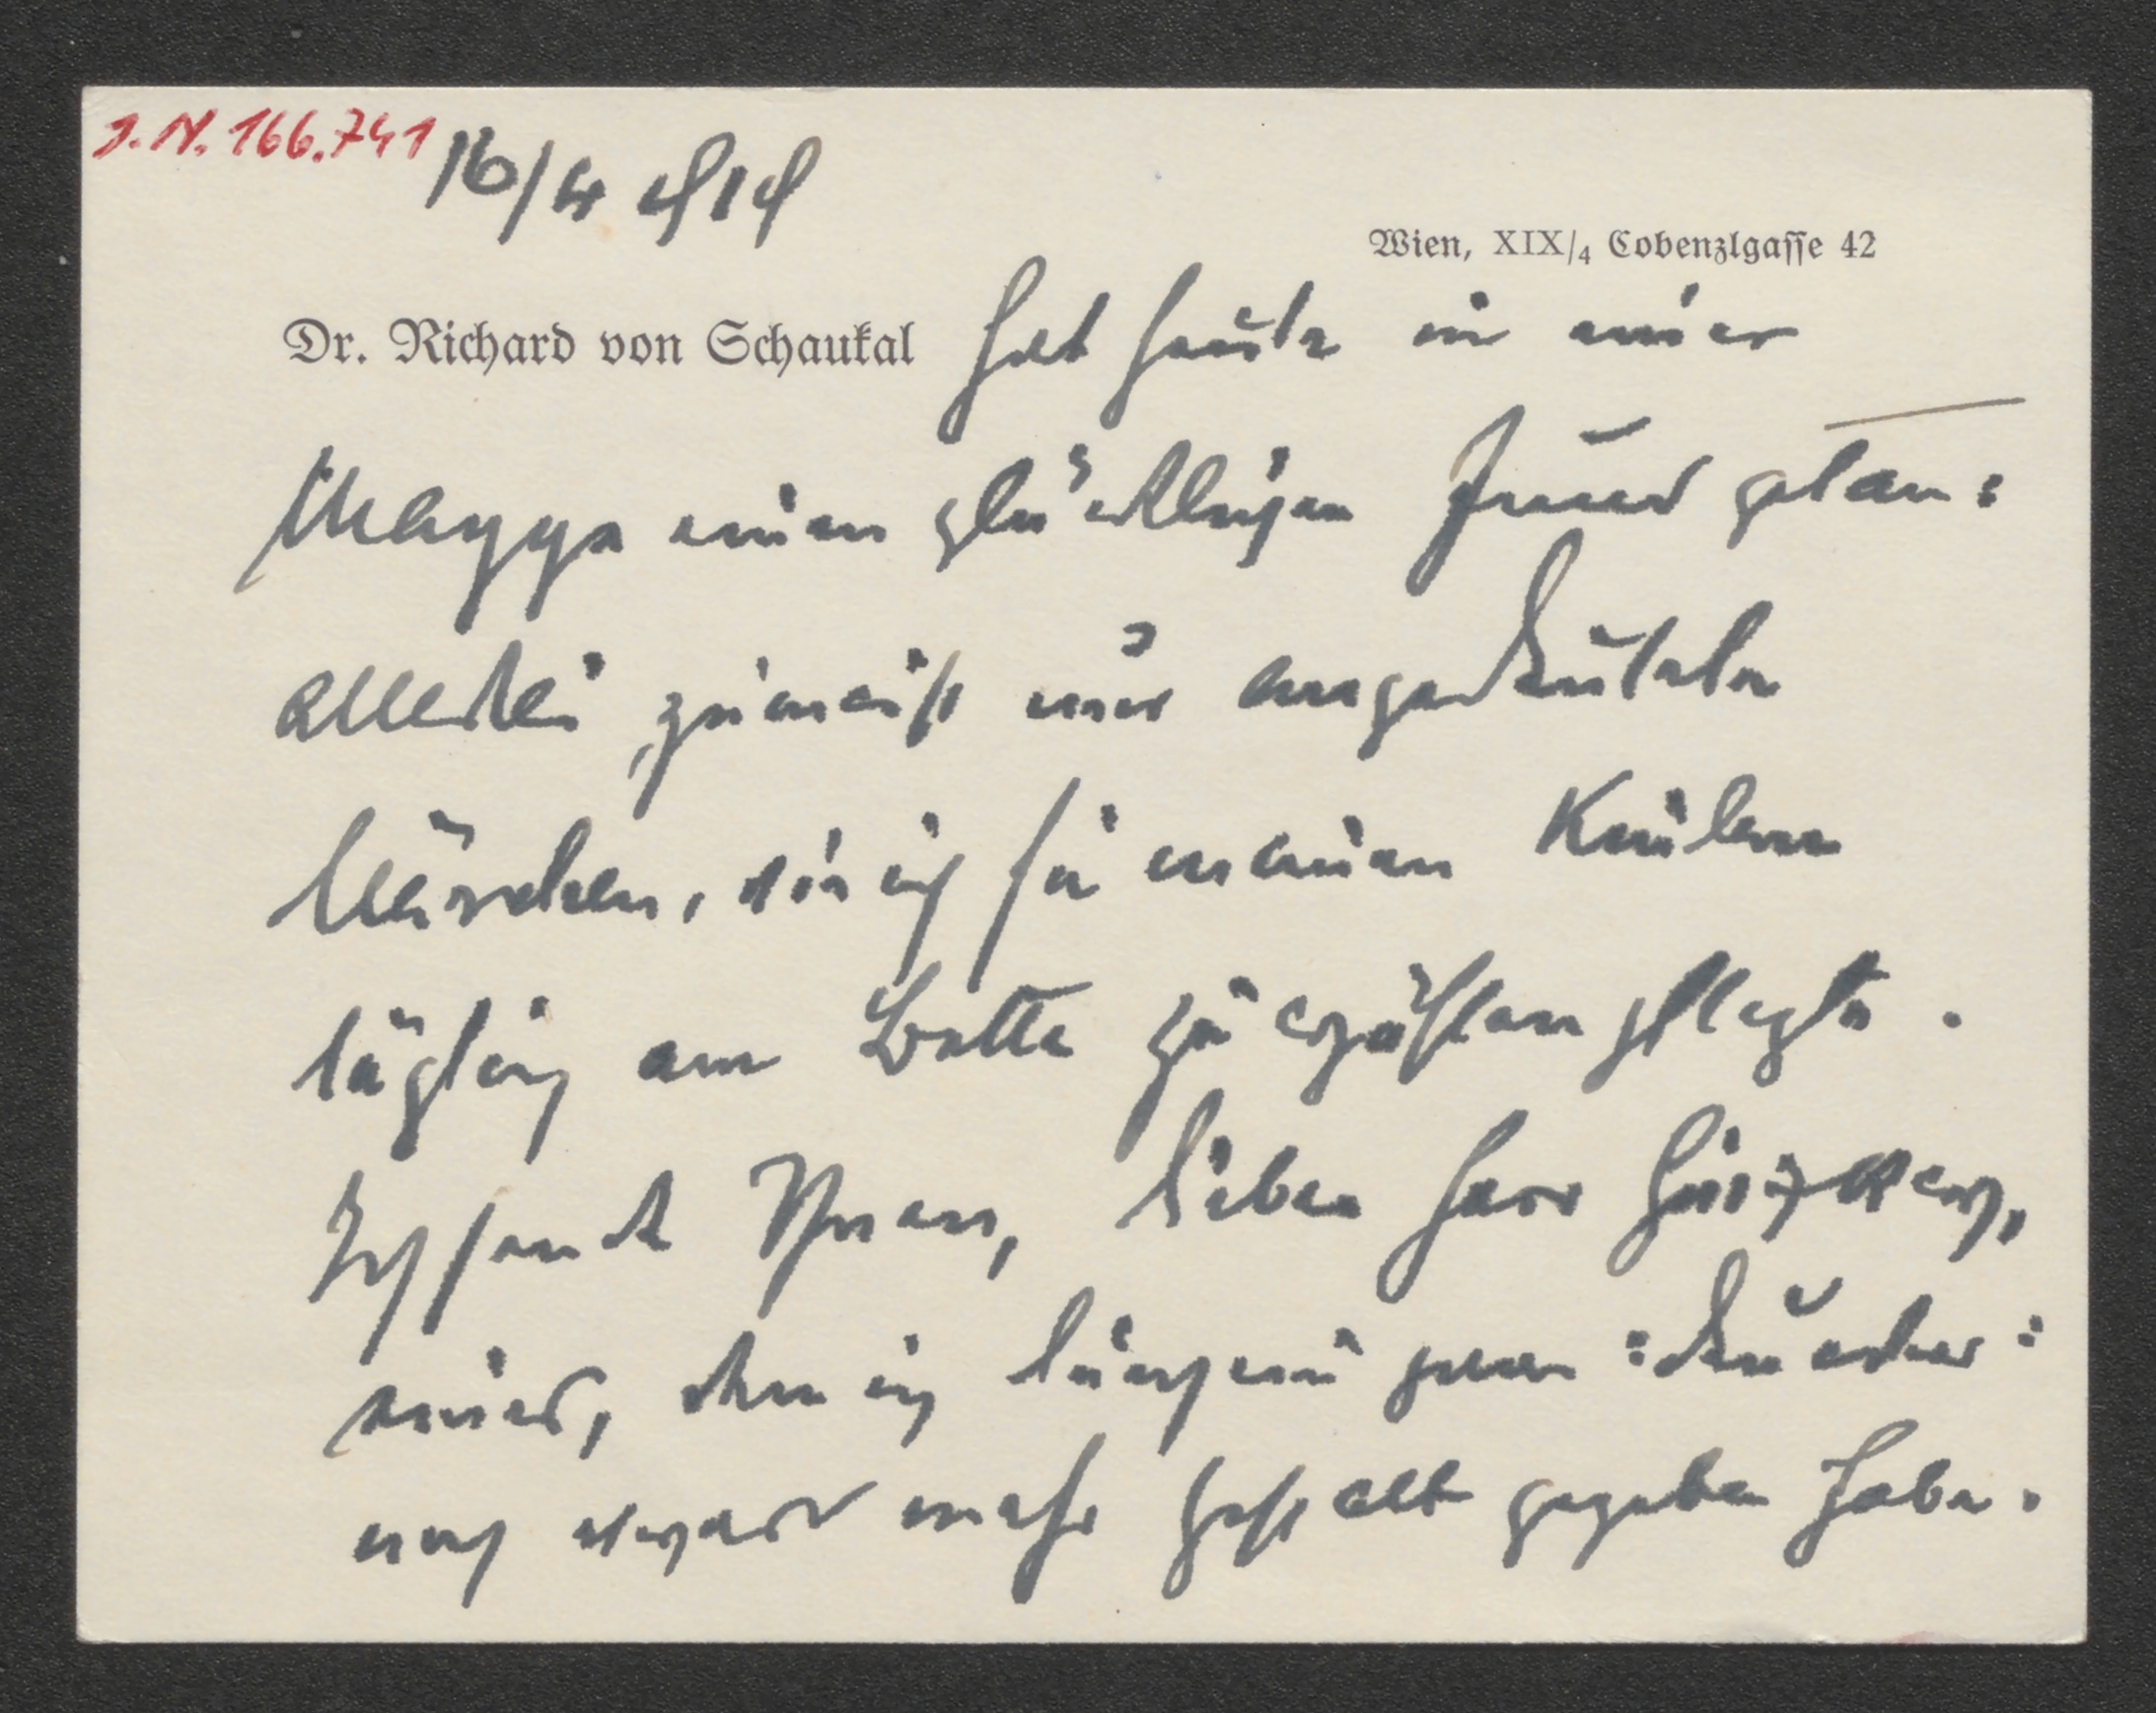 J.N. 166.741
16/4 1919
Wien, XIX/4 Cobenzlgasse 42
Dr. Richard von Schaukal hat heute in einer
Mappe einen glücklichen Fund getan:
allerlei, zumeist nur angedeutete
Märchen, die ich für meinen Knaben
täglich am Bette zu erzählen pflegte.
Ich sende Ihnen, lieber Herr
eines, dem ich gar :
noch etwas mehr Gestalt gegeben habe.